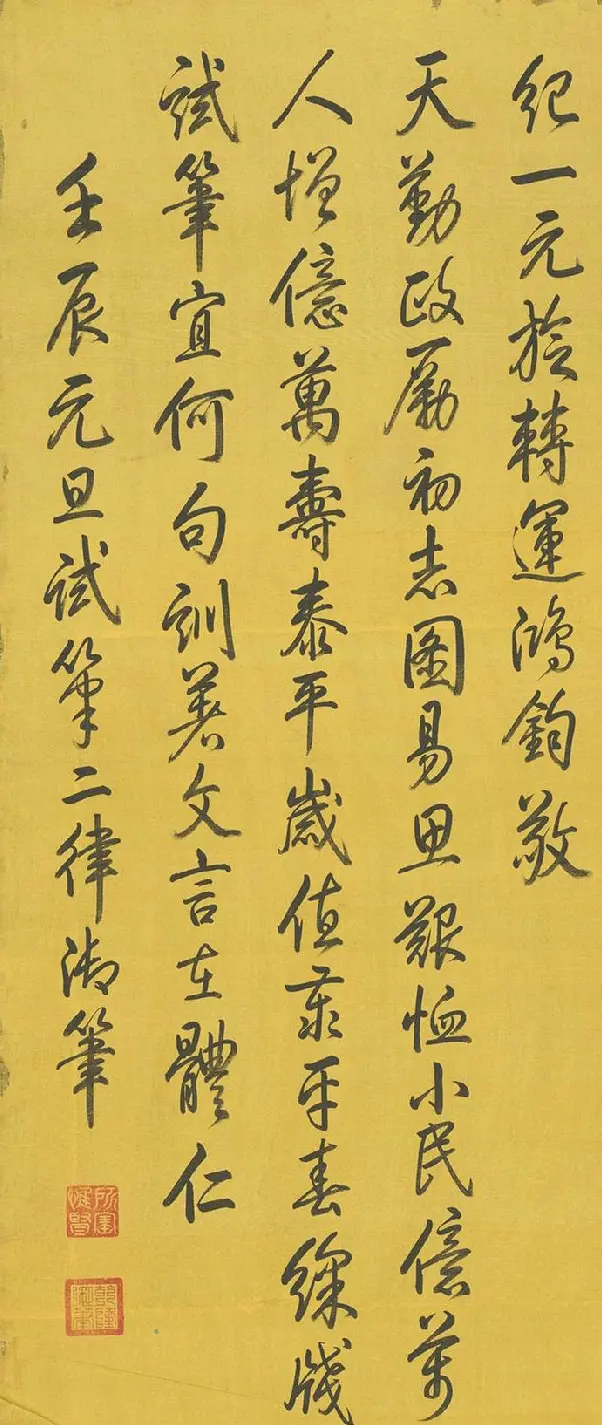 紀一元旋轉運鴻鈞敬
天勤政勵初志圖易思艱恤小民億萬
人增億萬壽泰平歲值泰平春綵牋
試筆宜何句訓著文言在體仁
壬辰元旦試筆二律御筆
所寶惟賢
乾隆御筆